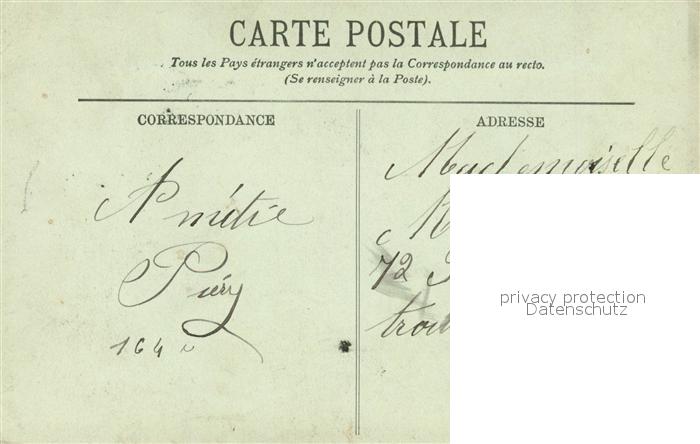 CARTE POSTALE
Tous les Pays étrangers n'acceptent pas la Correspondance au recto.
(Se renseigner à la Poste).
CORRESPONDANCE
ADRESSE
Mademoiselle
72
164
privacy protection
Datenschutz